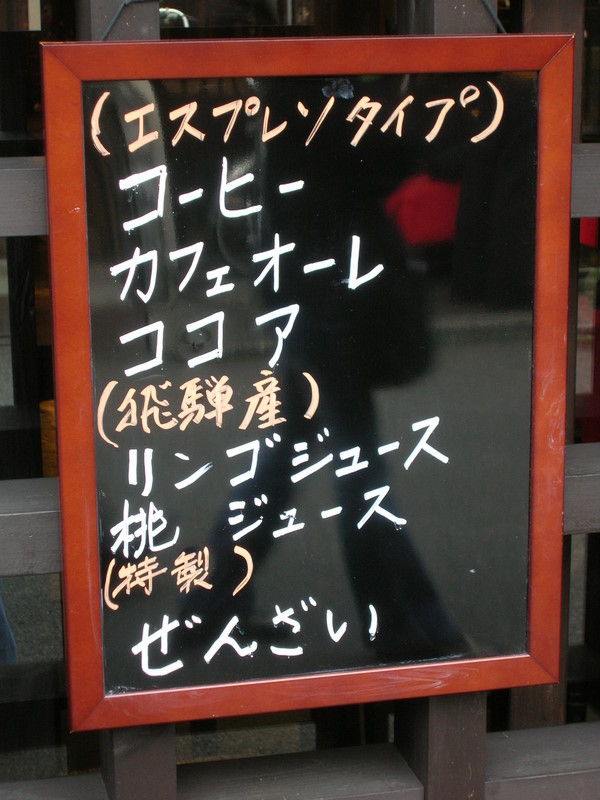 (エスプレソタイプ)
コーヒー
カフェオーレ
ココア
(飛騨産)
リンゴジュース
桃 ジュース
(特製)
ぜんざい